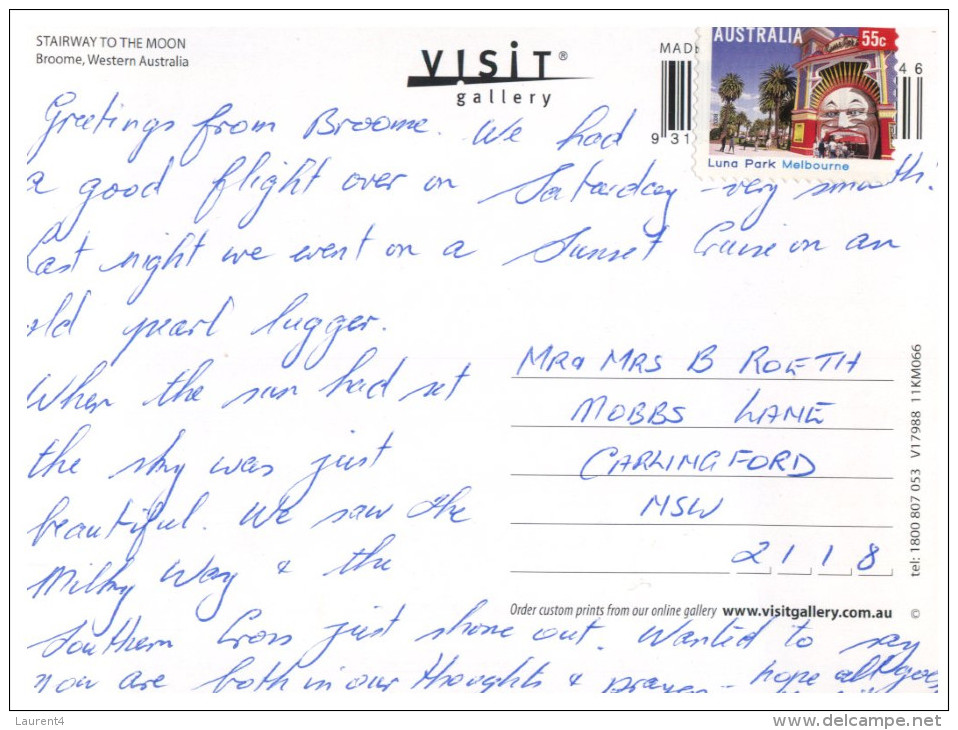 STAIRWAY TO THE MOON
Broome, Western Australia
VISiT®
gallery
MADE
AUSTRALIA
55c
46
9 31
Luna Park Melbourne
Greetings from Broome. We had
a good flight over on Saturday - very smooth.
Last night we went on a Sunset Cruise on an
old pearl lugger.
When the sun had set
the sky was just
beautiful. We saw the
Milky Way & the
Southern Cross just shone out. Wanted to say
you are both in our thoughts & prayer - hope all goes
MR & MRS B ROETH
MOBBS LANE
CARLINGFORD
NSW
2118
tel: 1800 807 053 V17988 11KM066
Order custom prints from our online gallery www.visitgallery.com.au ©
Laurent4
www.delcampe.net